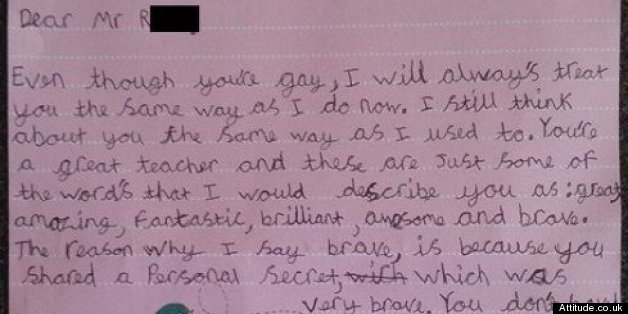 Dear Mr R
Even though you're gay, I will always's treat
you the same way as I do now. I still think
about you the same way as I used to. You're
a great teacher and these are Just some of
the word's that I would describe you as: great,
amazing, Fantastic, brilliant, awesome and brave.
The reason why I say brave, is because you
shared a Personal secret, with which was
very brave. You don't
Attitude.co.uk